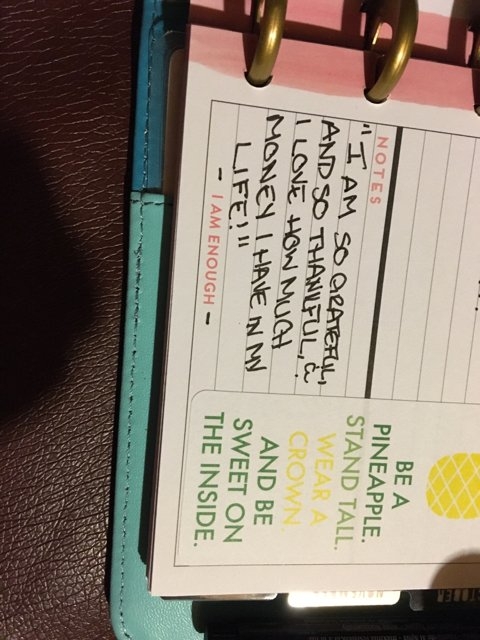 NOTES
"I AM SO GRATEFUL,
AND SO THANKFUL, &
I LOVE HOW MUCH
MONEY I HAVE IN MY
LIFE!"
- I AM ENOUGH -
BE A
PINEAPPLE.
STAND TALL.
WEAR A
CROWN
AND BE
SWEET ON
THE INSIDE.